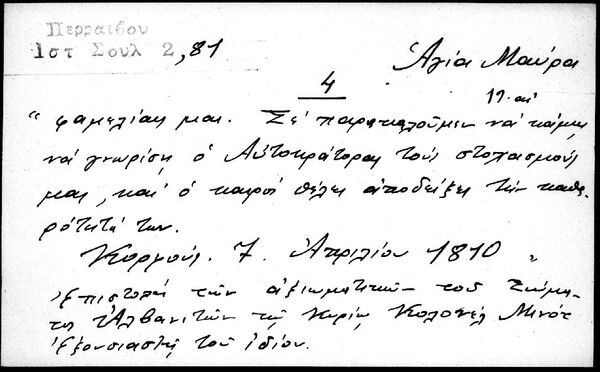 Περραιβου
Ιστ Σουλ 2,81
Ἁγία Μαύρα
4
" φαμελίας μας. Σέ παρακαλοῦμεν νά κάμης
νά γνωρίση ὁ Αὐτοκράτορας τούς στοχασμούς
μας, και ὁ καιρός θέλει ἀποδείξει τήν καθα-
ρότητά των.
7. Ἀπριλίου 1810 "
ἐπιστολή τῶν ἀξιωματικῶν τοῦ
Ἀλβανιτῶν Κολονέλ Μινότ
ἐξουσιαστή τοῦ ἰδίου.